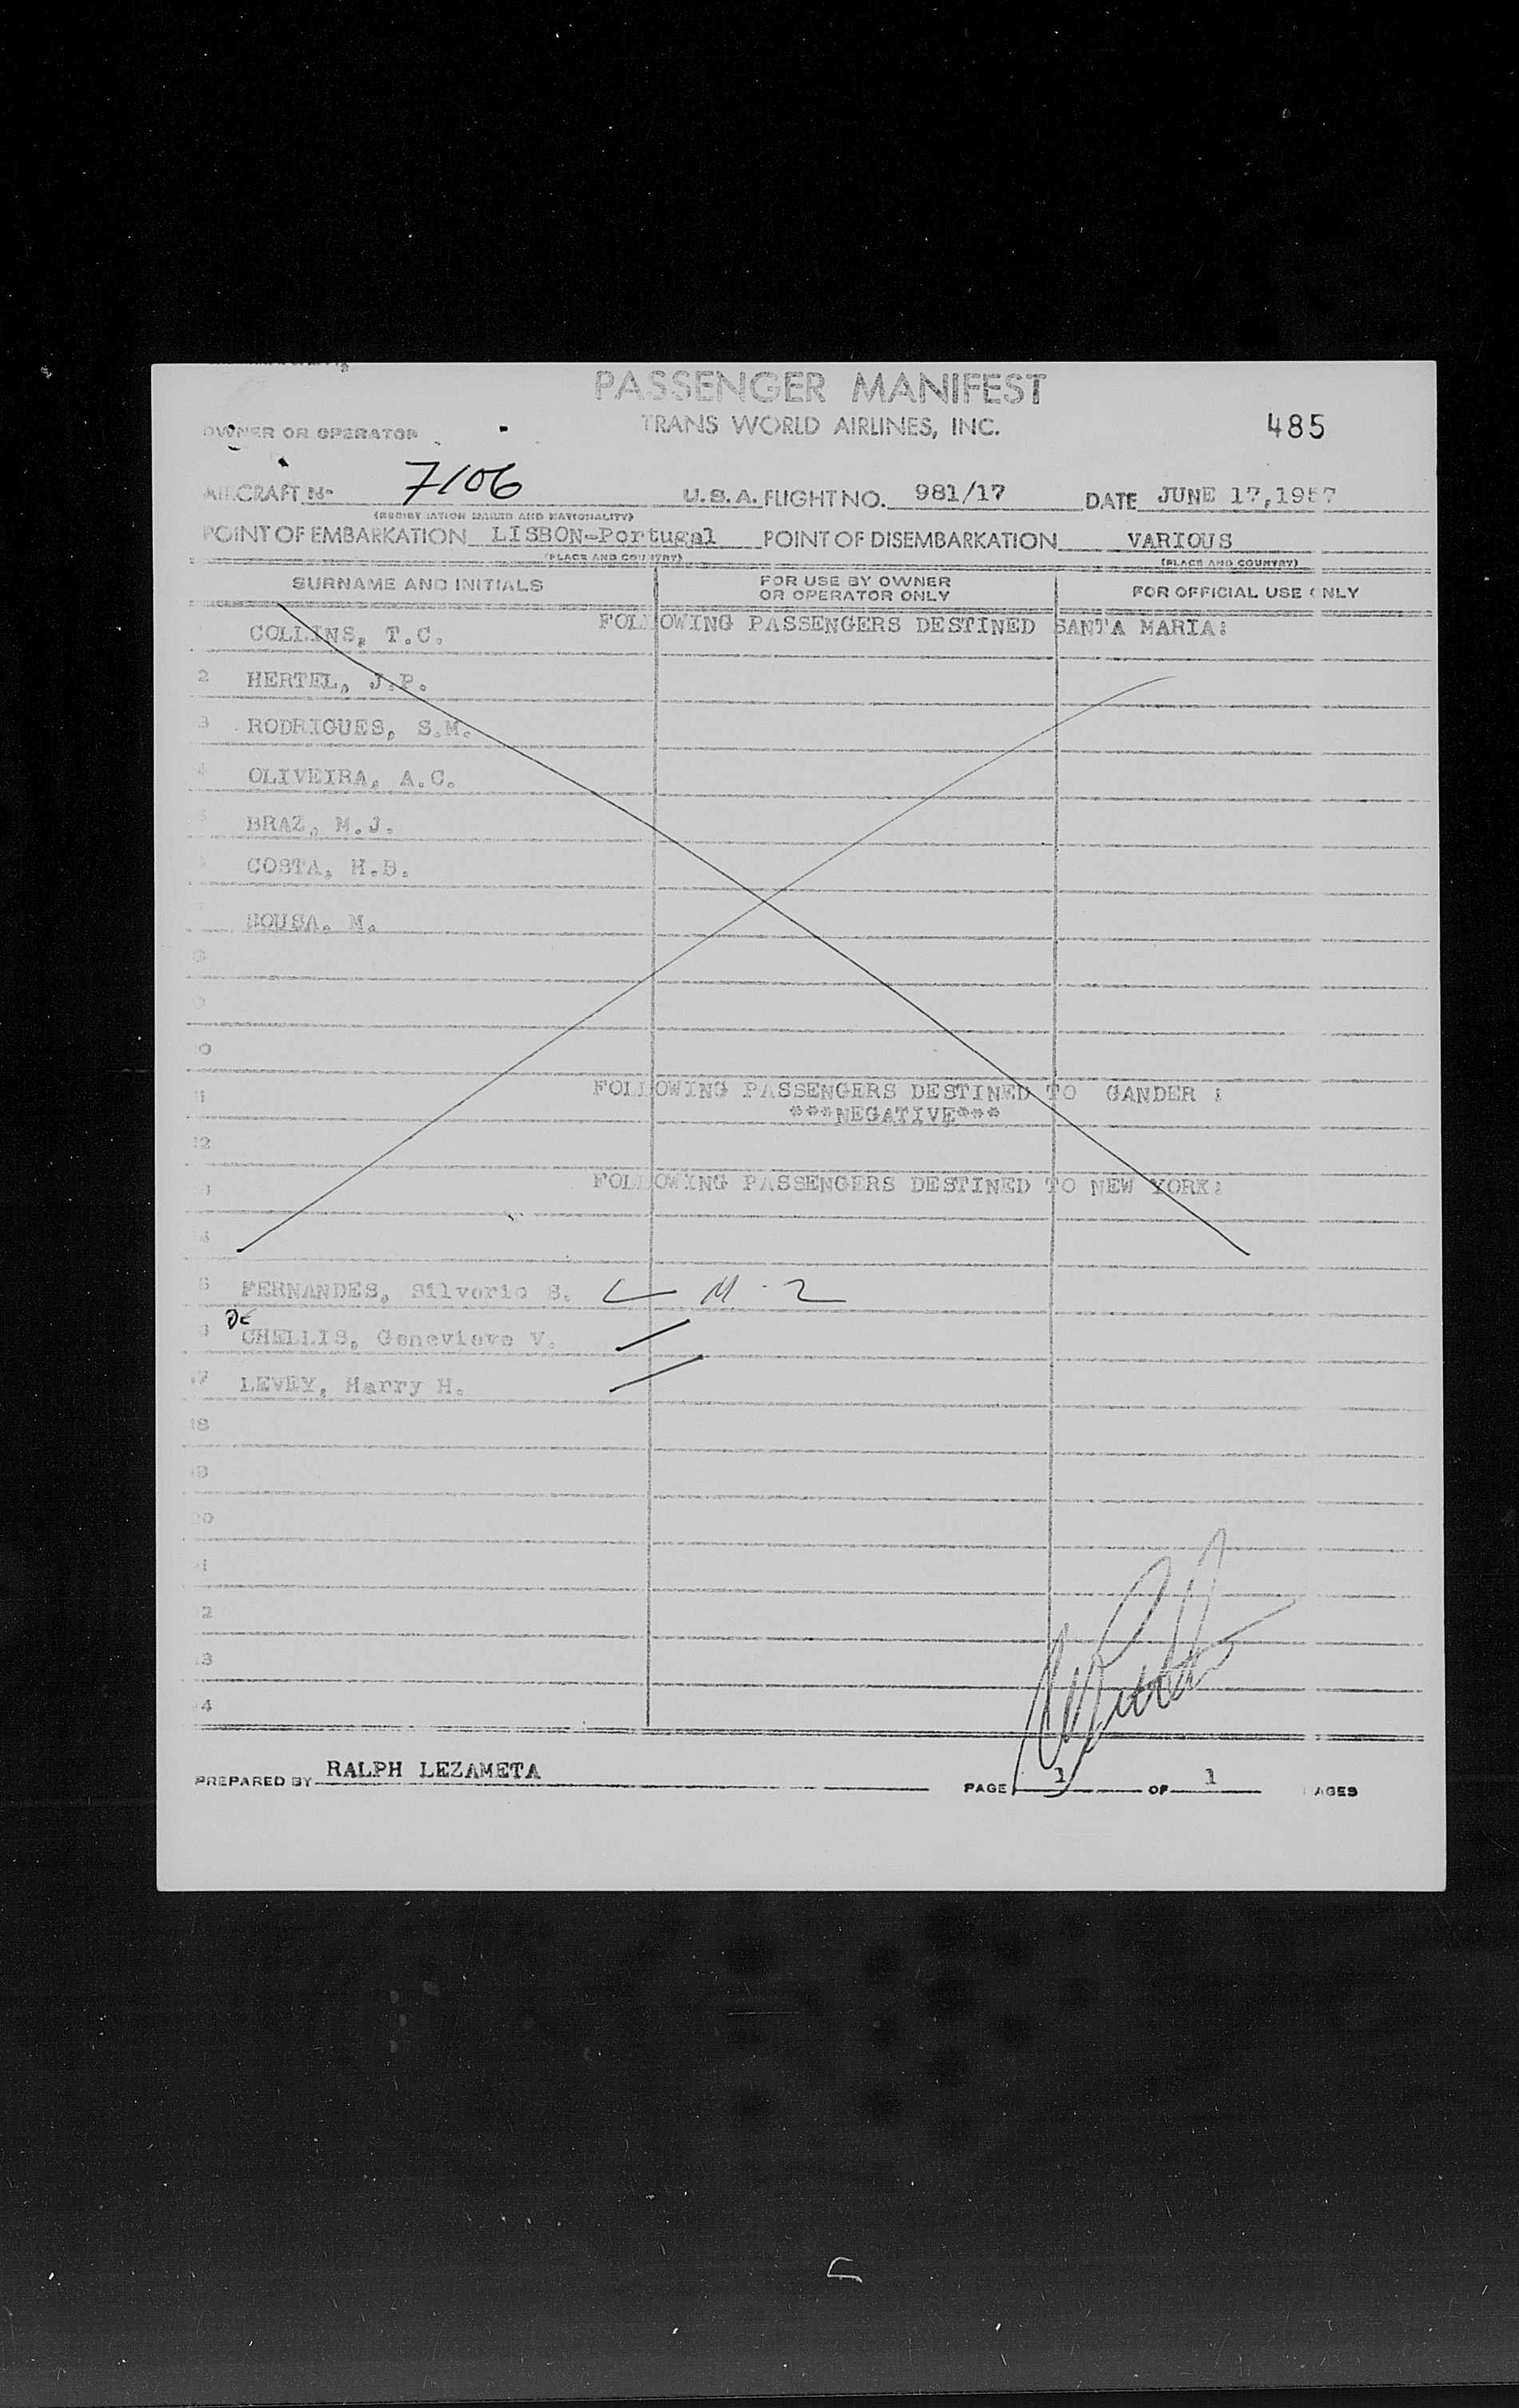 PASSENGER MANIFEST
OWNER OR OPERATOR TRANS WORLD AIRLINES, INC. 485
AIRCRAFT No 7106 U.S.A. FLIGHT NO. 981/17 DATE JUNE 17,1957
(REGISTRATION MARKS AND NATIONALITY)
POINT OF EMBARKATION LISBON-Portugal POINT OF DISEMBARKATION VARIOUS
(PLACE AND COUNTRY) (PLACE AND COUNTRY)
SURNAME AND INITIALS FOR USE BY OWNER OR OPERATOR ONLY FOR OFFICIAL USE ONLY
FOLLOWING PASSENGERS DESTINED SANTA MARIA:
COLLINS, T.C.
2 HERTEL, J.P.
3 RODRIGUES, S.M.
4 OLIVEIRA, A.C.
5 BRAZ, M.J.
COSTA, H.B.
SOUSA, M.
8
9
0
11 FOLLOWING PASSENGERS DESTINED TO GANDER :
***NEGATIVE***
12
1 FOLLOWING PASSENGERS DESTINED TO NEW YORK:
4
5 FERNANDES, Silverio S. M - 2
DE
6 CHELLIS, Genevieve V.
17 LEVEY, Harry H.
18
19
20
1
2
3
4
PREPARED BY RALPH LEZAMETA PAGE 1 OF 1 PAGES